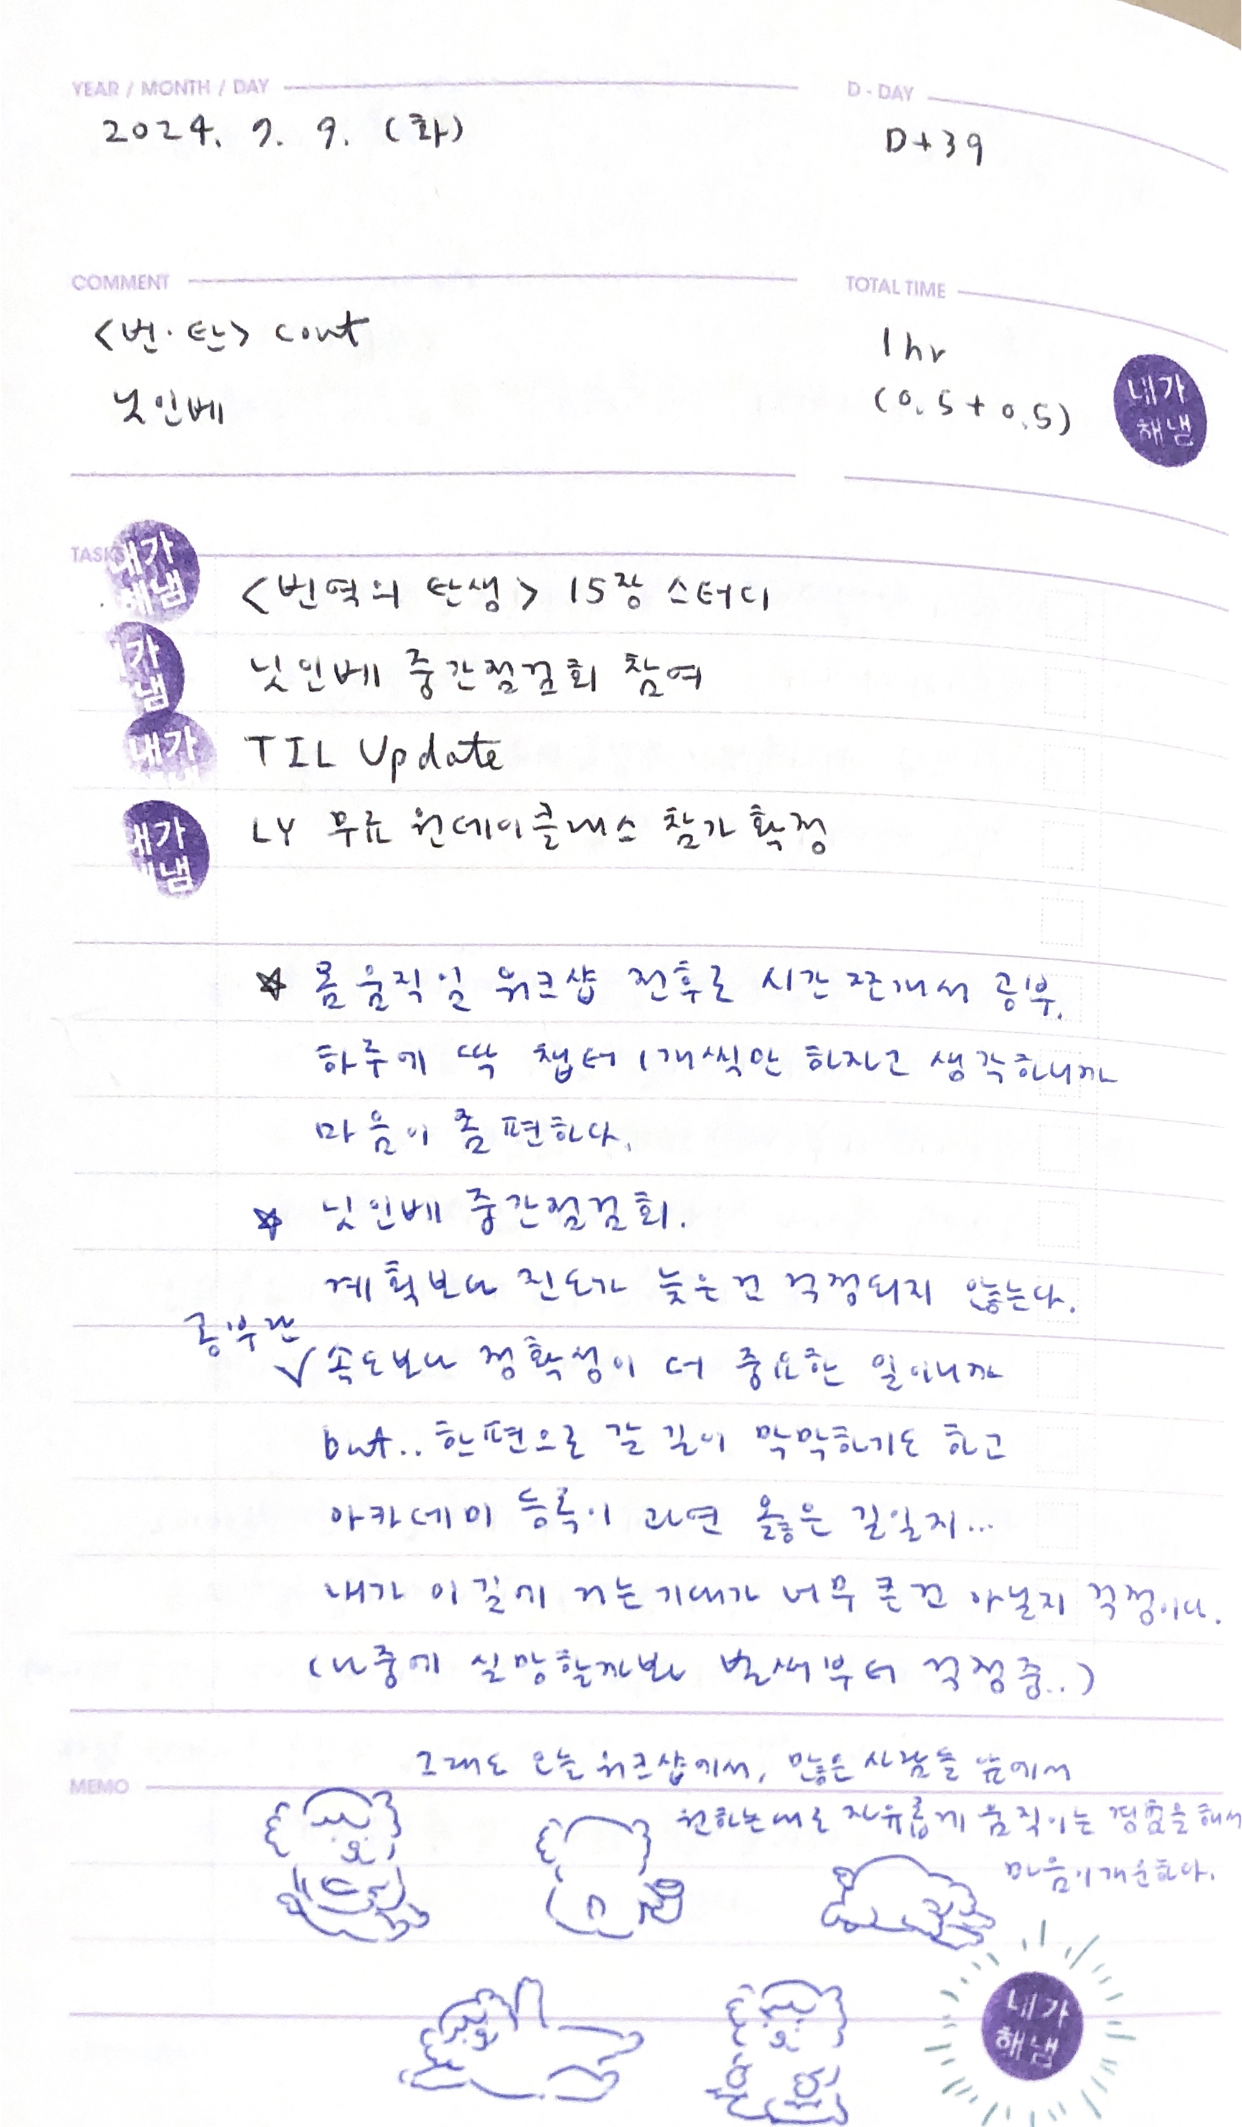 YEAR / MONTH / DAY
2024. 7. 9. (화)
D - DAY
D+39
COMMENT
<번·탄> cont
닛인베
TOTAL TIME
1hr
(0.5+0.5)
내가
해냄
TASKS
내가
해냄
<번역의 탄생> 15장 스터디
가
냄
닛인베 중간점검회 참여
내가
TIL Update
내가
해냄
LY 무료 원데이클래스 참가 확정
☆ 몸 움직일 워크샵 전후로 시간 쪼개서 공부.
하루에 딱 챕터 1개씩만 하자고 생각하니까
마음이 좀 편하다.
☆ 닛인베 중간점검회.
계획보다 진도가 늦은 건 걱정되지 않는다.
공부란
✓ 속도보다 정확성이 더 중요한 일이니까
but.. 한편으로 갈 길이 막막하기도 하고
아카데미 등록이 과연 옳은 길일지...
내가 이 길에 거는 기대가 너무 큰 건 아닐지 걱정이다.
(나중에 실망할까봐 벌써부터 걱정중..)
그래도 오늘 워크샵에서, 많은 사람들 앞에서
MEMO
원하는대로 자유롭게 움직이는 경험을 해서
마음이 개운하다.
내가
해냄